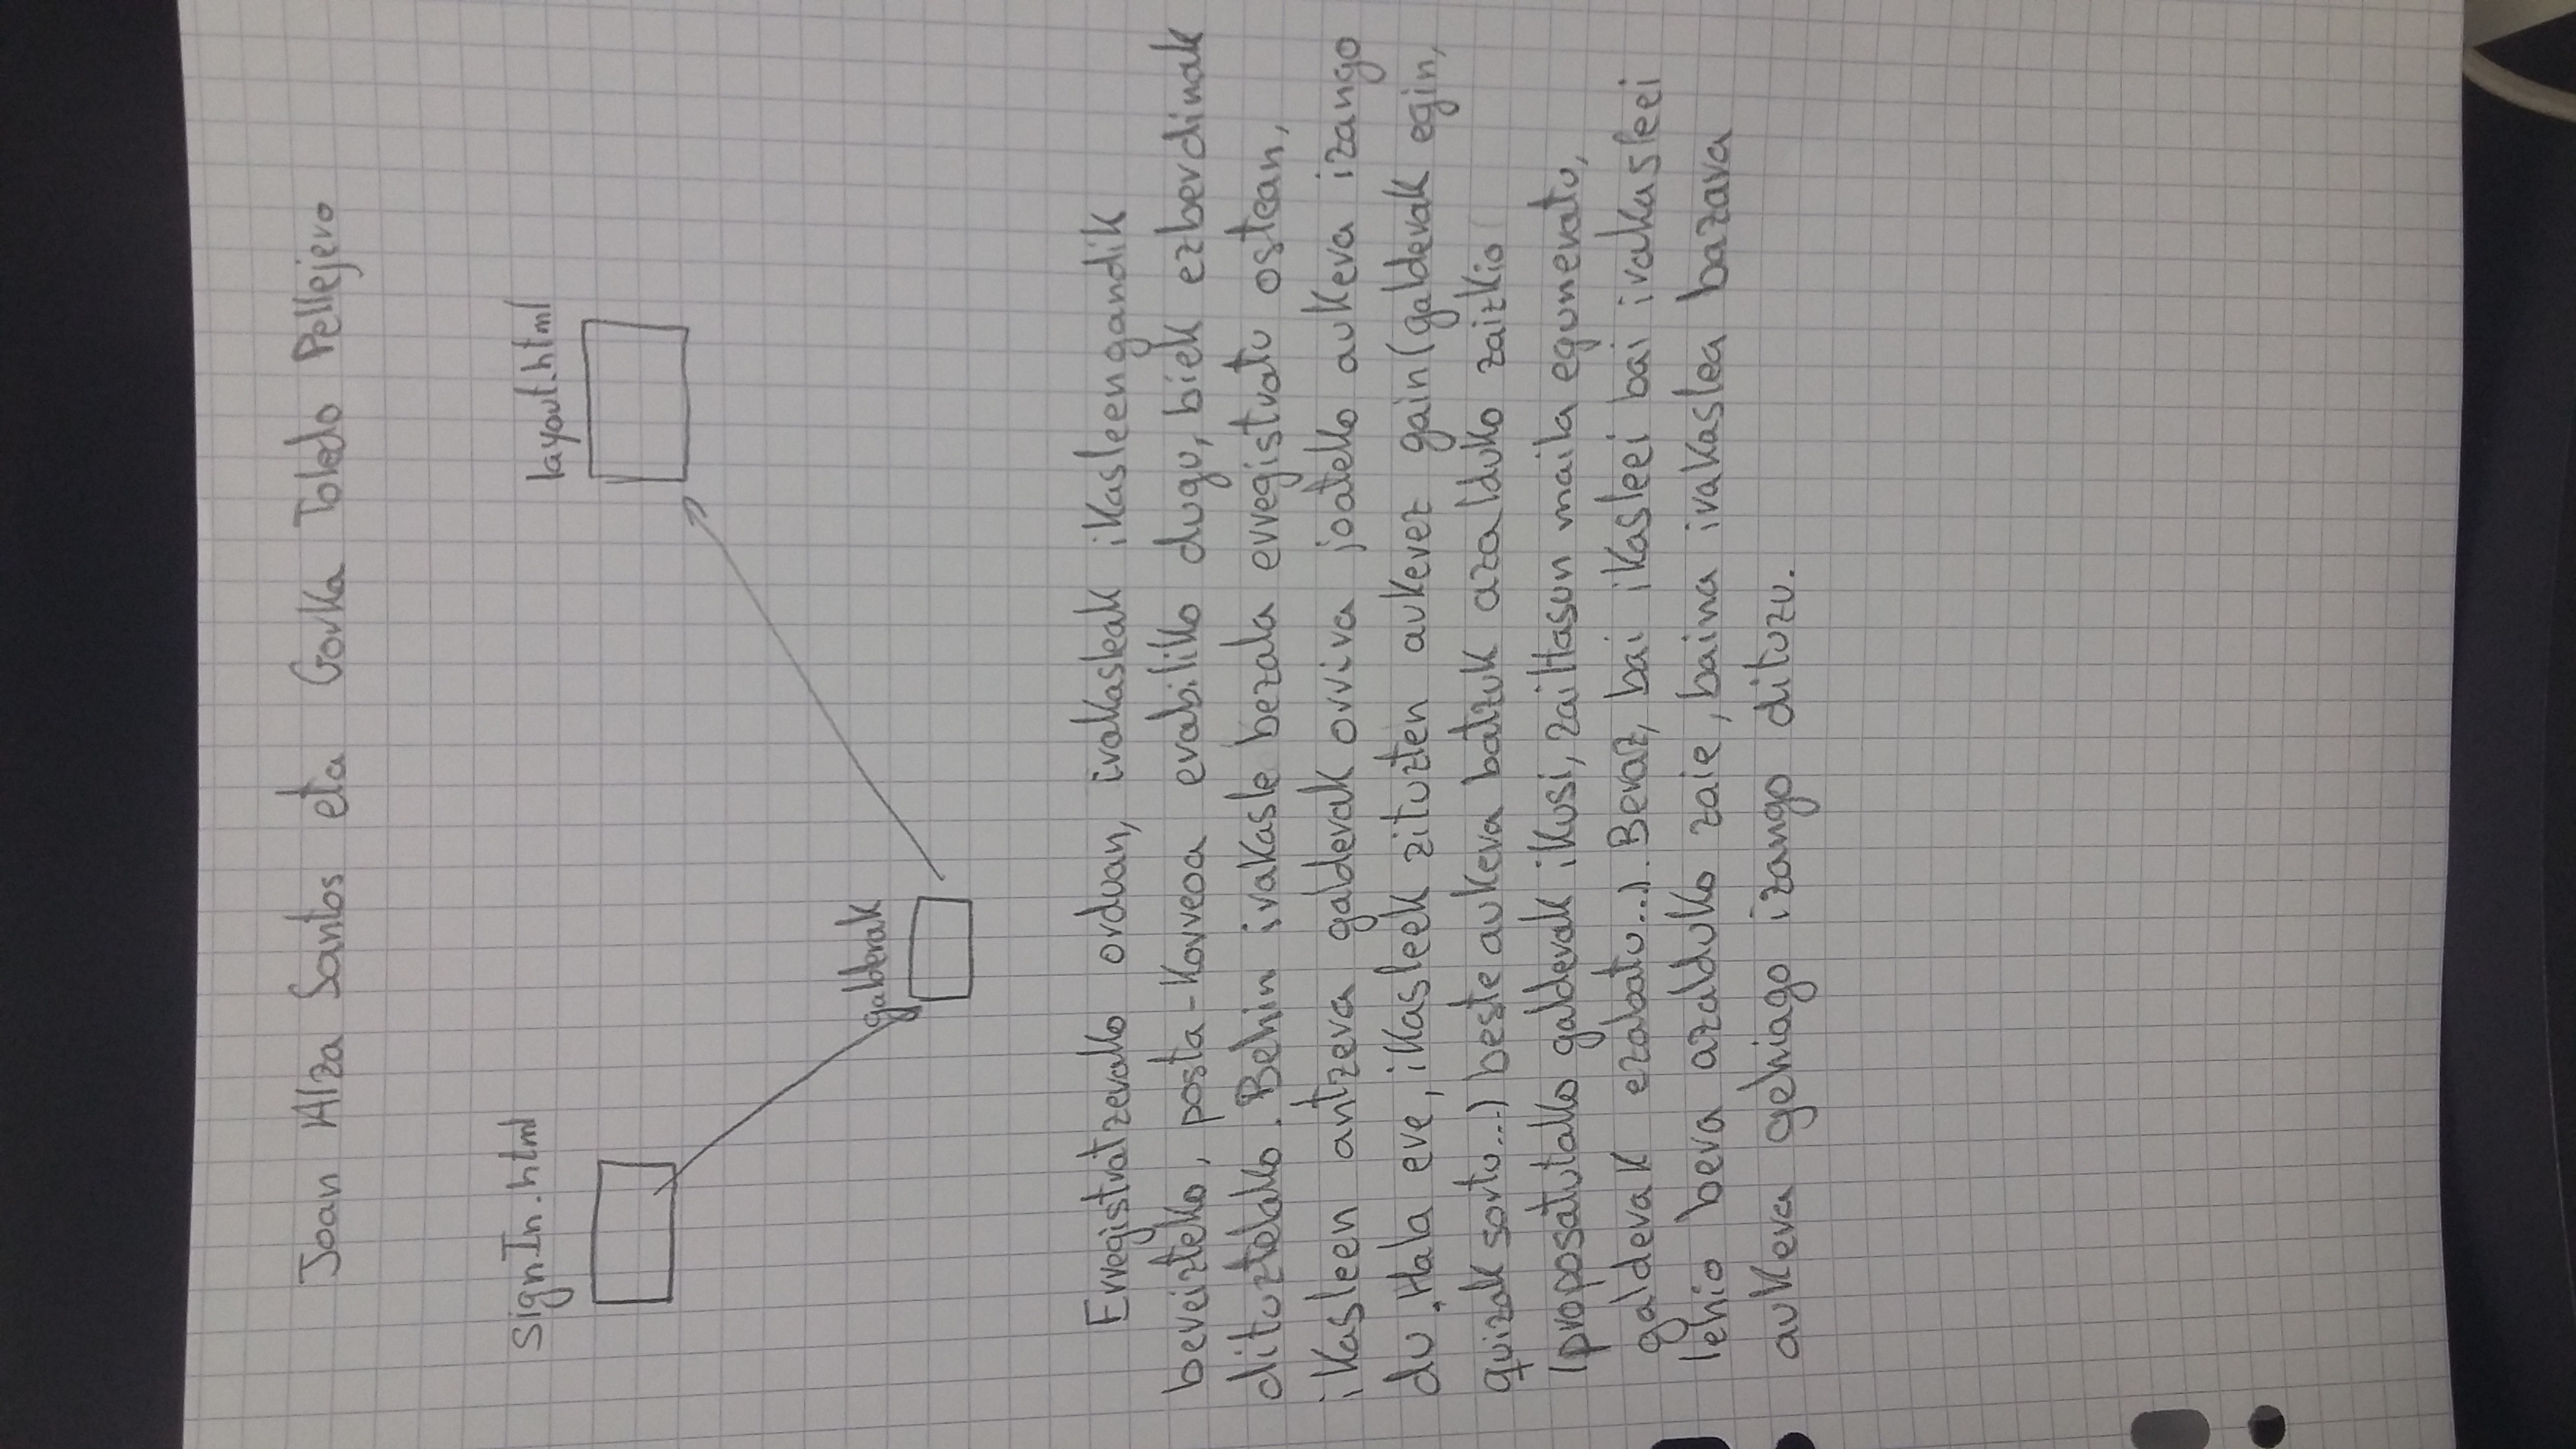 Joan Alza Santos eta Gorka Toledo Pellejero
signIn.html
layout.html
galderak
Erregistratzerako orduan, irakasleak ikasleengandik
bereizteko, posta-korreoa erabiliko dugu, biek ezberdinak
dituztelako. Behin irakasle bezala erregistratu ostean,
ikasleen antzera galderak orrira joateko aukera izango
du. Hala ere, ikasleek zituzten aukerez gain (galderak egin,
quizak sortu...) beste aukera batzuk azalduko zaizkio
(proposatutako galderak ikusi, zailtasun maila eguneratu,
galderak ezabatu...). Beraz, bai ikasleei bai irakasleei
lehio bera azalduko zaie, baina irakaslea bazara
aukera gehiago izango dituzu.